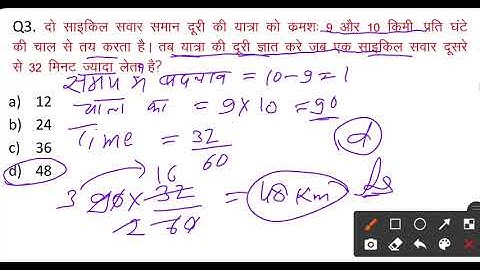 Q3. दो साइकिल सवार समान दूरी की यात्रा को क्रमशः 9 और 10 किमी प्रति घंटे
की चाल से तय करता है। तब यात्रा की दूरी ज्ञात करे जब एक साइकिल सवार दूसरे
से 32 मिनट ज्यादा लेता है?
समय में = 10-9=1
a) 12
चाल का = 9×10 = 90
b) 24
Time = 32/60
c) 36
d
d) 48
16
3 90 × 32/60 = 48 Km Ans
2